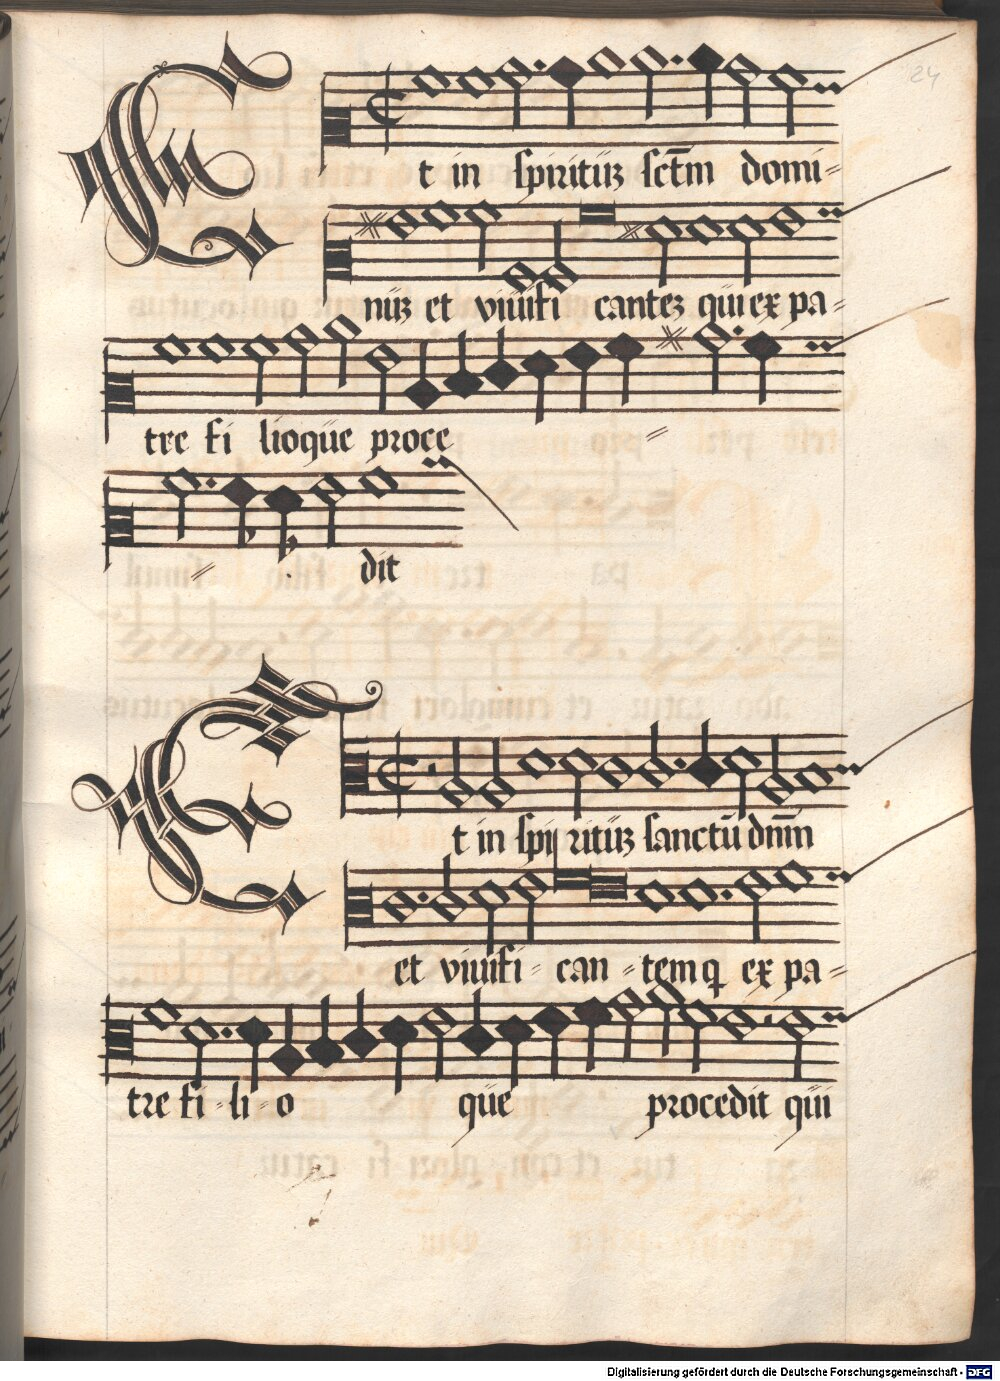 24
Et in spiritūʒ sctm̄ domi=
nūʒ et viuifi canteʒ qui ex pa=
tre fi lioque proce =
= dit
Et in spi ritūʒ sanctū dnm̄
et viuifi= can=temqꝫ ex pa=
tre fi=li=o que procedit qui
Digitalisierung gefördert durch die Deutsche Forschungsgemeinschaft - DFG